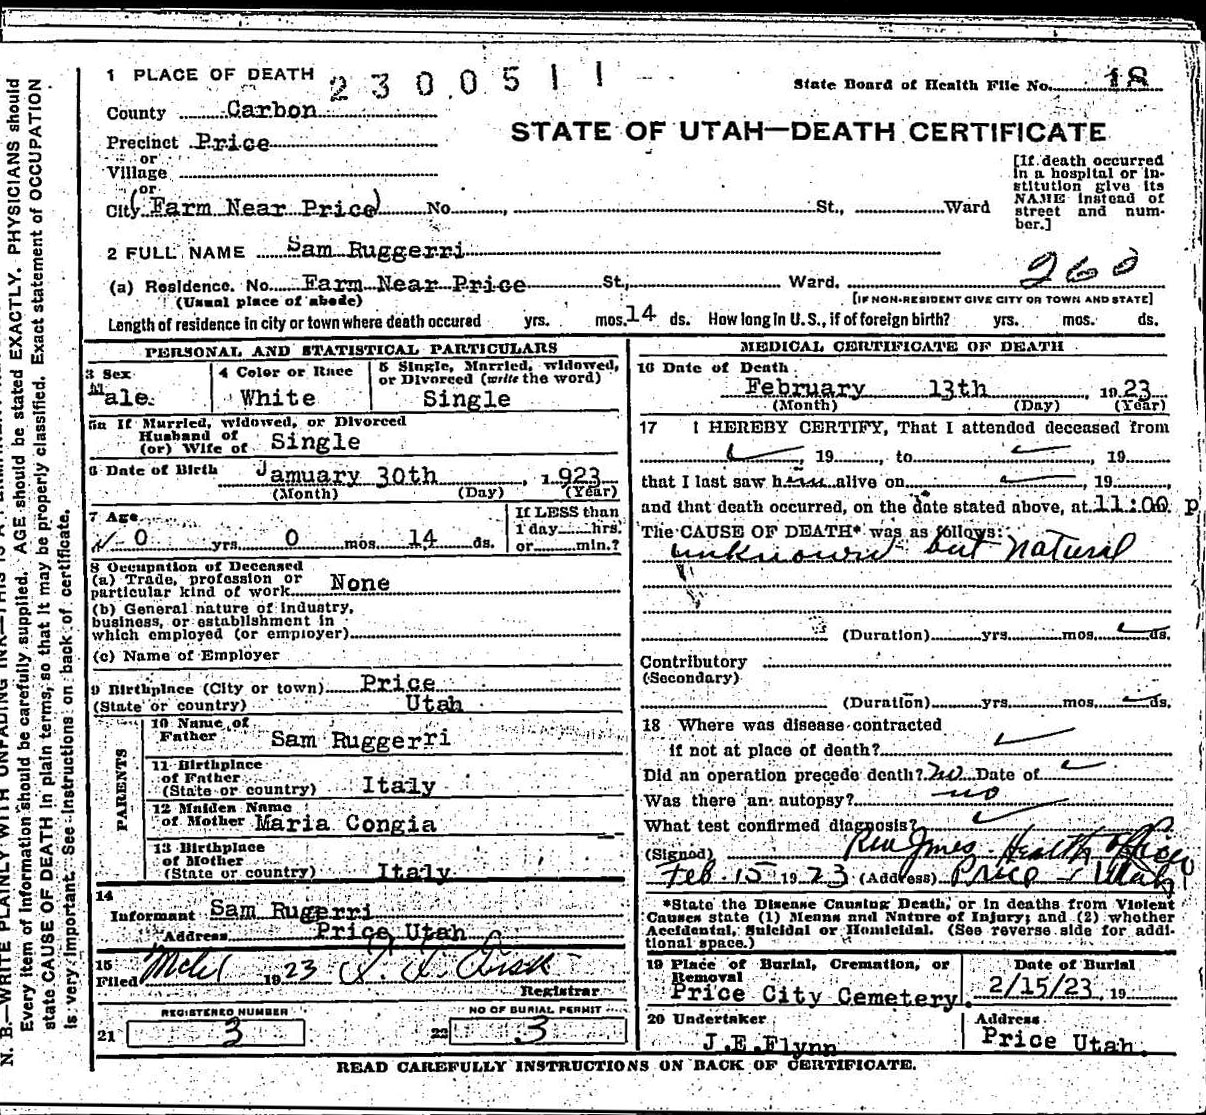 1 PLACE OF DEATH 2300511
State Board of Health File No. 18
County Carbon
STATE OF UTAH—DEATH CERTIFICATE
Precinct Price
or
Village
or
City (Farm Near Price) No. , St., Ward
[If death occurred
in a hospital or in-
stitution give its
NAME instead of
street and num-
ber.]
2 FULL NAME Sam Ruggerri
260
(a) Residence. No. Farm Near Price St., Ward.
(Usual place of abode) [IF NON-RESIDENT GIVE CITY OR TOWN AND STATE]
Length of residence in city or town where death occured yrs. mos. 14 ds. How long in U. S., if of foreign birth? yrs. mos. ds.
PERSONAL AND STATISTICAL PARTICULARS
3 Sex
Male.
4 Color or Race
White
5 Single, Married, widowed,
or Divorced (write the word)
Single
5a If Married, widowed, or Divorced
Husband of
(or) Wife of Single
6 Date of Birth January 30th , 1923
(Month) (Day) (Year)
7 Age
0 yrs. 0 mos. 14 ds.
If LESS than
1 day hrs.
or min.?
8 Occupation of Deceased
(a) Trade, profession or
particular kind of work None
(b) General nature of industry,
business, or establishment in
which employed (or employer)
(c) Name of Employer
9 Birthplace (City or town) Price
(State or country) Utah
PARENTS
10 Name of
Father Sam Ruggerri
11 Birthplace
of Father
(State or country) Italy
12 Maiden Name
of Mother Maria Congia
13 Birthplace
of Mother
(State or country) Italy
14
Informant Sam Rugerri
Address Price Utah
15
Filed 1923
Registrar
REGISTERED NUMBER
21 3
NO OF BURIAL PERMIT
22 3
MEDICAL CERTIFICATE OF DEATH
16 Date of Death
February 13th , 1923
(Month) (Day) (Year)
17 I HEREBY CERTIFY, That I attended deceased from
, 19 , to , 19
that I last saw him alive on , 19 ,
and that death occurred, on the date stated above, at 11:00 p
The CAUSE OF DEATH* was as follows:
unknown but natural
(Duration) yrs. mos. ds.
Contributory
(Secondary)
(Duration) yrs. mos. ds.
18 Where was disease contracted
if not at place of death?
Did an operation precede death? No Date of
Was there an autopsy? no
What test confirmed diagnosis?
(Signed) Jones Health Officer
Feb 15 1923 (Address) Price Utah
*State the Disease Causing Death, or in deaths from Violent
Causes state (1) Means and Nature of Injury; and (2) whether
Accidental, Suicidal or Homicidal. (See reverse side for addi-
tional space.)
19 Place of Burial, Cremation, or
Removal
Price City Cemetery.
Date of Burial
2/15/23 , 19
20 Undertaker
J.E.Flynn
Address
Price Utah.
READ CAREFULLY INSTRUCTIONS ON BACK OF CERTIFICATE.
N. B.—WRITE PLAINLY WITH UNFADING INK—THIS IS A PERMANENT
Every item of information should be carefully supplied. AGE should be stated EXACTLY. PHYSICIANS should
state CAUSE OF DEATH in plain terms, so that it may be properly classified. Exact statement of OCCUPATION
is very important. See instructions on back of certificate.